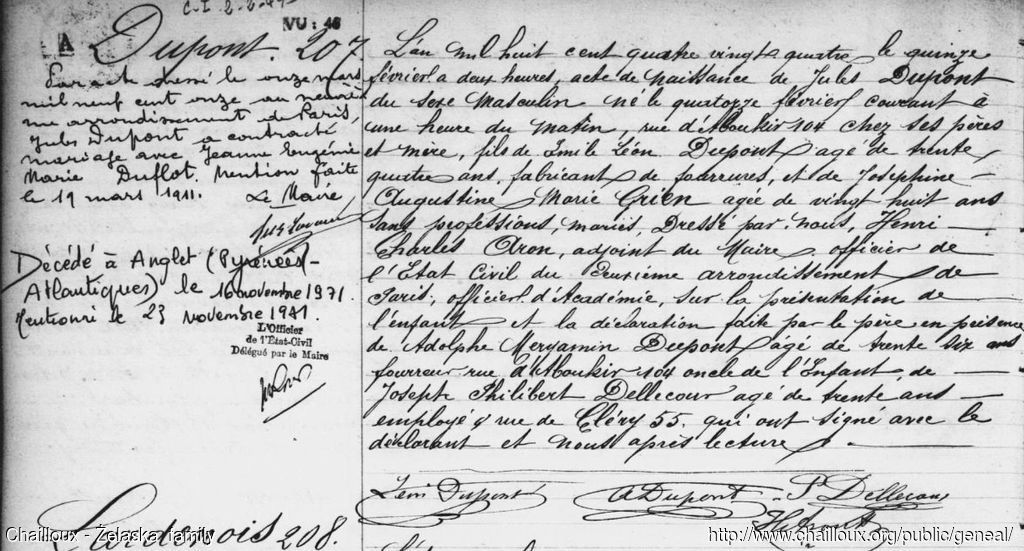 C.I. 2-2-49
VU : 46
A
Dupont. 207
Par acte dressé le onze mars
mil neuf cent onze au neuviè
me arrondissement de Paris,
Jules Dupont a contracté
mariage avec Jeanne Eugénie
Marie Duflot. Mention faite
le 19 mars 1911. Le Maire,
Décédé à Anglet (Pyrénées-
Atlantiques) le 16 novembre 1971.
Mentionné le 23 novembre 1971.
L'Officier
de l'Etat-Civil
Délégué par le Maire
L'an mil huit cent quatre vingt quatre le quinze
février à deux heures, acte de naissance de Jules Dupont
du sexe masculin né le quatorze février courant à
une heure du matin, rue d'Aboukir 104 chez ses pères
et mère, fils de Emile Léon Dupont agé de trente
quatre ans, fabricant de fourrures, et de Joséphine
Augustine Marie Grien agée de vingt huit ans
sans profession, mariés, Dressé par nous, Henri
Charles Aron, adjoint du Maire, officier de
l'Etat Civil du deuxième arrondissement de
Paris, officier d'Académie, sur la présentation de
l'enfant et la déclaration faite par le père en présence
de Adolphe Meryamin Dupont agé de trente six ans
fourreur rue d'Aboukir 104 oncle de l'Enfant, de
Joseph Philibert Dellecour agé de trente ans
employé rue de Cléry 55. qui ont signé avec le
déclarant et nous après lecture.
Léon Dupont
A Dupont
P Dellecour
Lardenois 208.
Chailloux - Zelaska family
http://www.chailloux.org/public/geneal/